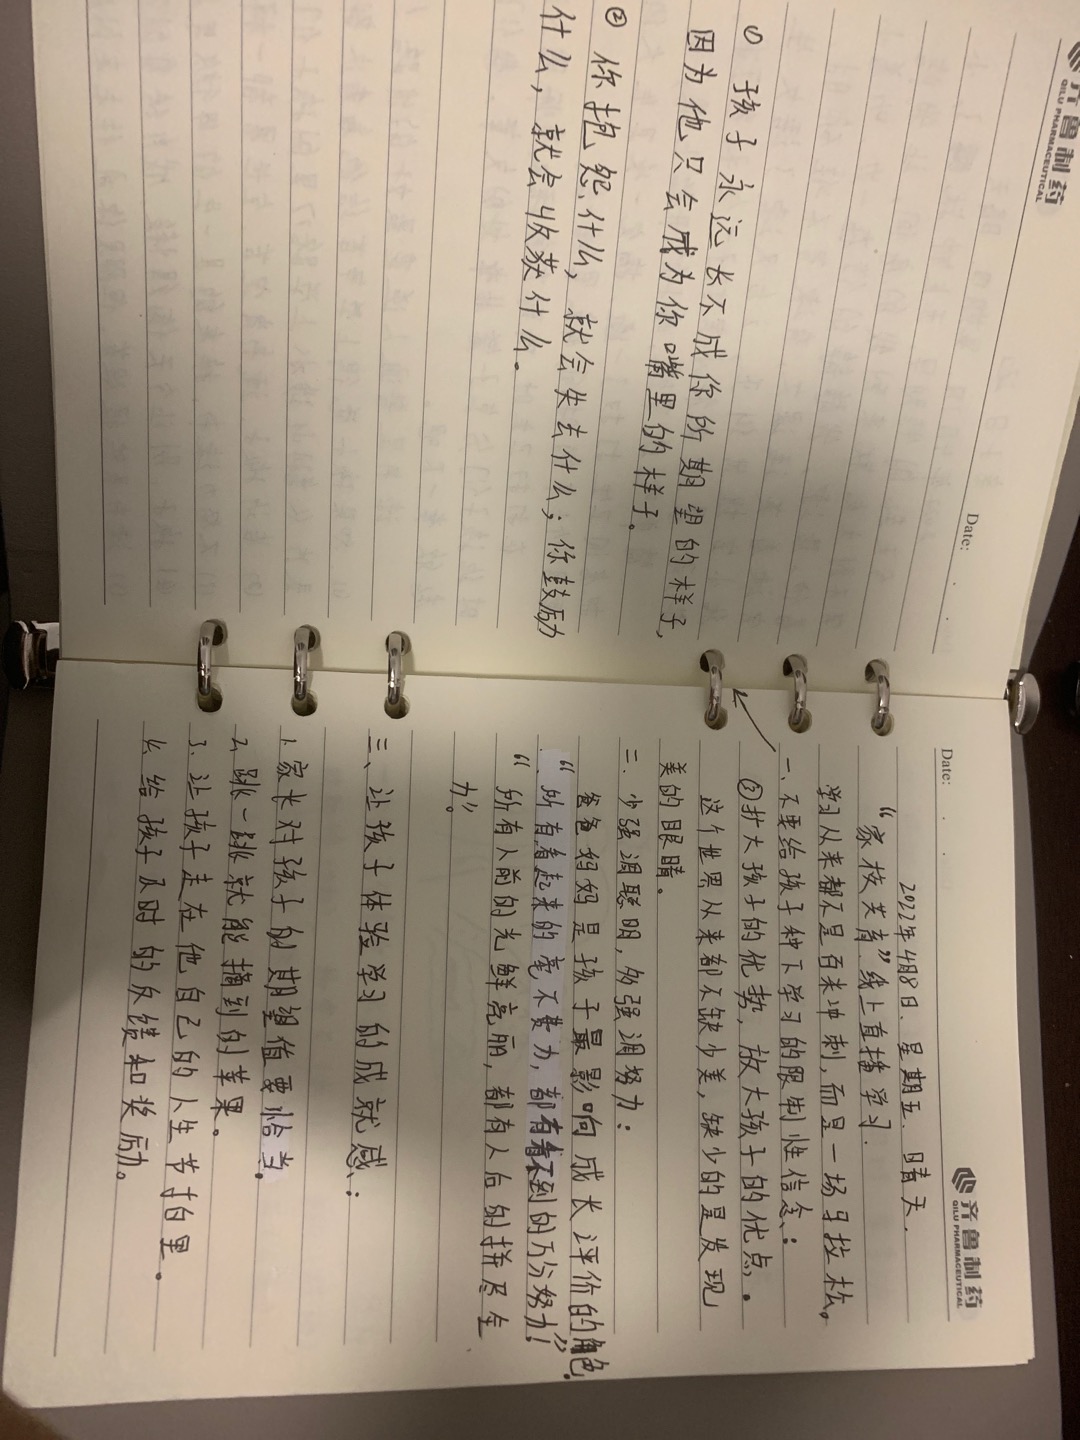 齐鲁制药
QILU PHARMACEUTICAL
Date:
① 孩子永远长不成你所期望的样子,
因为他只会成为你嘴里的样子。
② 你抱怨什么,就会失去什么;你鼓励
什么,就会收获什么。
齐鲁制药
QILU PHARMACEUTICAL
Date:
2022年4月8日、星期五、晴天.
“家校共育”线上直播学习.
学习从来都不是百米冲刺,而是一场马拉松。
一、不要给孩子种下学习的限制性信念、:
③扩大孩子的优势,放大孩子的优点。
这个世界从来都不缺少美,缺少的是发现
美的眼睛。
二.少强调聪明,多强调努力:
爸爸妈妈是孩子最影响成长评价的角色.
“所有看起来的毫不费力,都有看不到的万分努力!”
“所有人前的光鲜亮丽,都有人后的拼尽全
力”。
三、让孩子体验学习的成就感、:
1.家长对孩子的期望值要恰当.
2.跳一跳就能摘到的苹果。
3.让孩子走在他自己的人生节拍里.
4.给孩子及时的反馈和奖励。